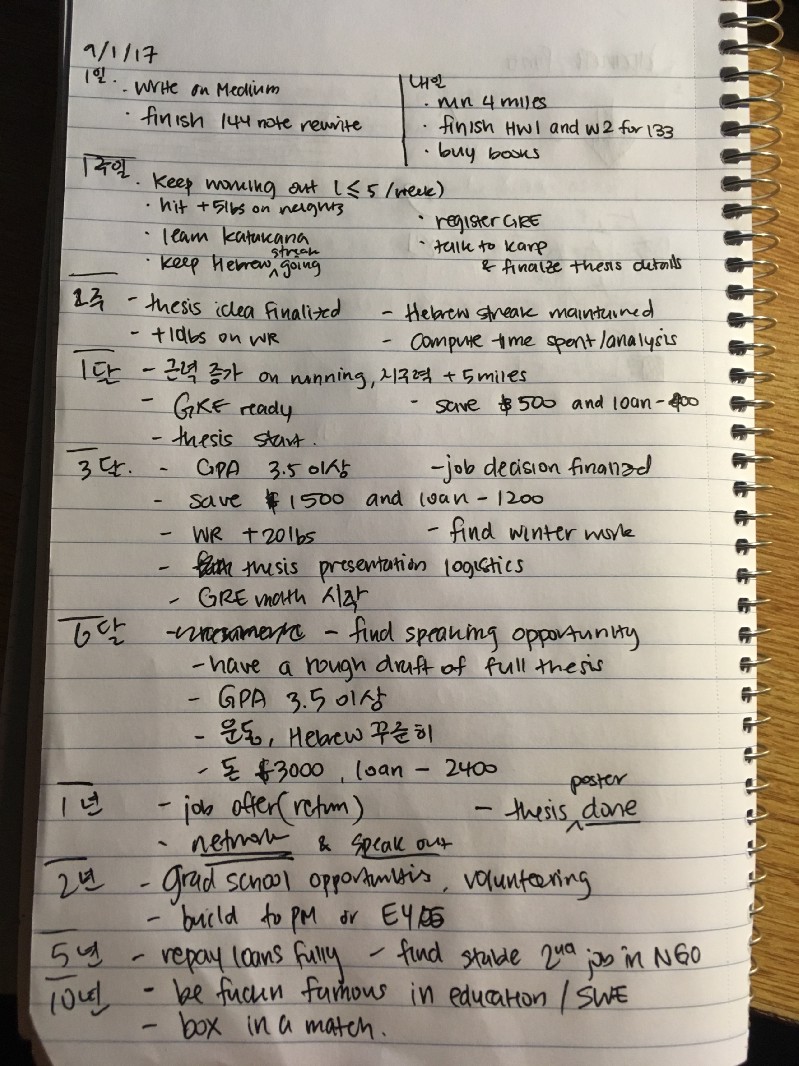 9/1/17
1일. · write on Medium
· finish 144 note rewrite
내일
· run 4 miles
· finish HW1 and W2 for 133
· buy books
1주일. · keep working out (≤5/week)
· hit +5lbs on weights
· learn katakana
· keep Hebrew streak going
· register GRE
· talk to Karp
& finalize thesis details
2주 - thesis idea finalized - Hebrew streak maintained
- +10lbs on WR - compute time spent/analysis
1달 - 근력 증가 on running, 지구력 +5miles
- GRE ready - save $500 and loan-400
- thesis start.
3달. - GPA 3.5 이상 - job decision finalized
- save $1500 and loan-1200
- WR +20lbs - find winter work
- thesis presentation logistics
- GRE math 시작
6달 - find speaking opportunity
- have a rough draft of full thesis
- GPA 3.5 이상
- 운동, Hebrew 꾸준히
- 돈 $3000, loan - 2400
1년 - job offer (return) - thesis poster done
- network & speak out
2년 - grad school opportunities, volunteering
- build to PM or E4
5년 - repay loans fully - find stable 2nd job in NGO
10년 - be fuckn famous in education / SWE
- box in a match.